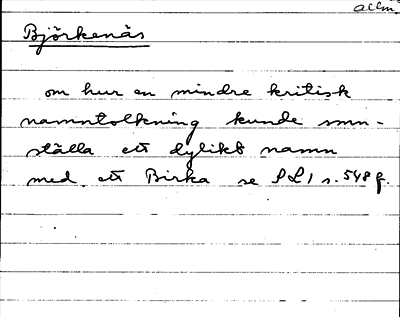 allm
Björkenäs
om hur en mindre kritisk
namntolkning kunde smn-
ställa ett dylikt namn
med ett Birka se SL 1 s. 548 f.